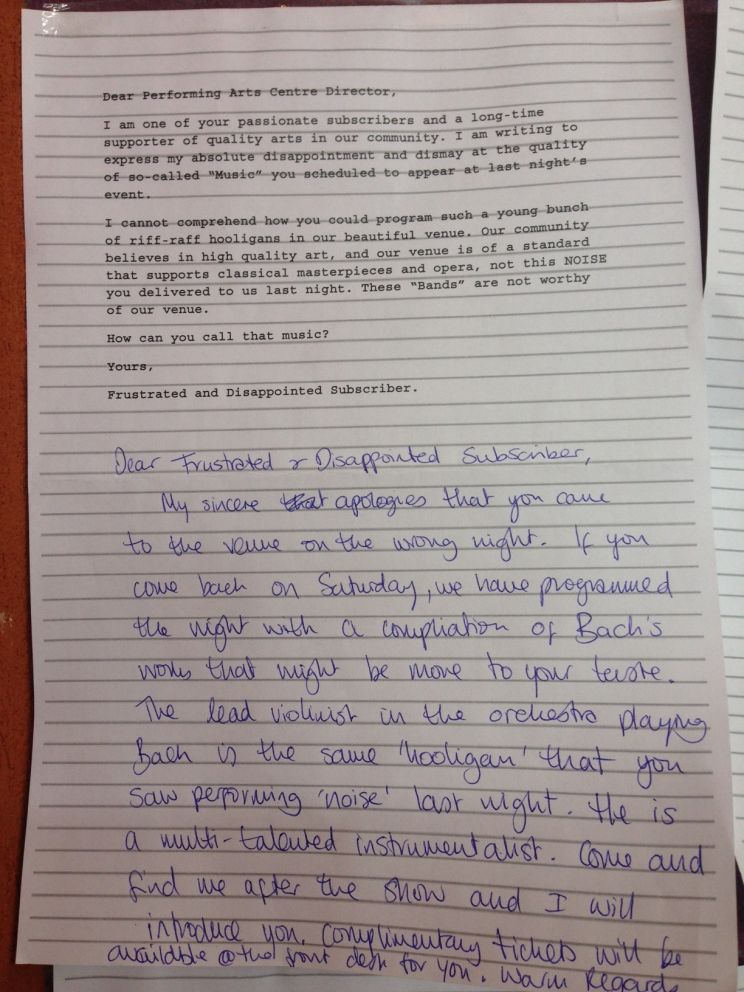 Dear Performing Arts Centre Director,
I am one of your passionate subscribers and a long-time
supporter of quality arts in our community. I am writing to
express my absolute disappointment and dismay at the quality
of so-called "Music" you scheduled to appear at last night's
event.
I cannot comprehend how you could program such a young bunch
of riff-raff hooligans in our beautiful venue. Our community
believes in high quality art, and our venue is of a standard
that supports classical masterpieces and opera, not this NOISE
you delivered to us last night. These "Bands" are not worthy
of our venue.
How can you call that music?
Yours,
Frustrated and Disappointed Subscriber.
Dear Frustrated & Disappointed Subscriber,
My sincere apologies that you came
to the venue on the wrong night. If you
come back on Saturday, we have programmed
the night with a compliation of Bach's
works that might be more to your taste.
The lead violinist in the orchestra playing
Bach is the same 'hooligan' that you
saw performing 'noise' last night. He is
a multi-talented instrumentalist. Come and
find me after the show and I will
introduce you. Complimentary tickets will be
available @ the front desk for you. Warm Regards